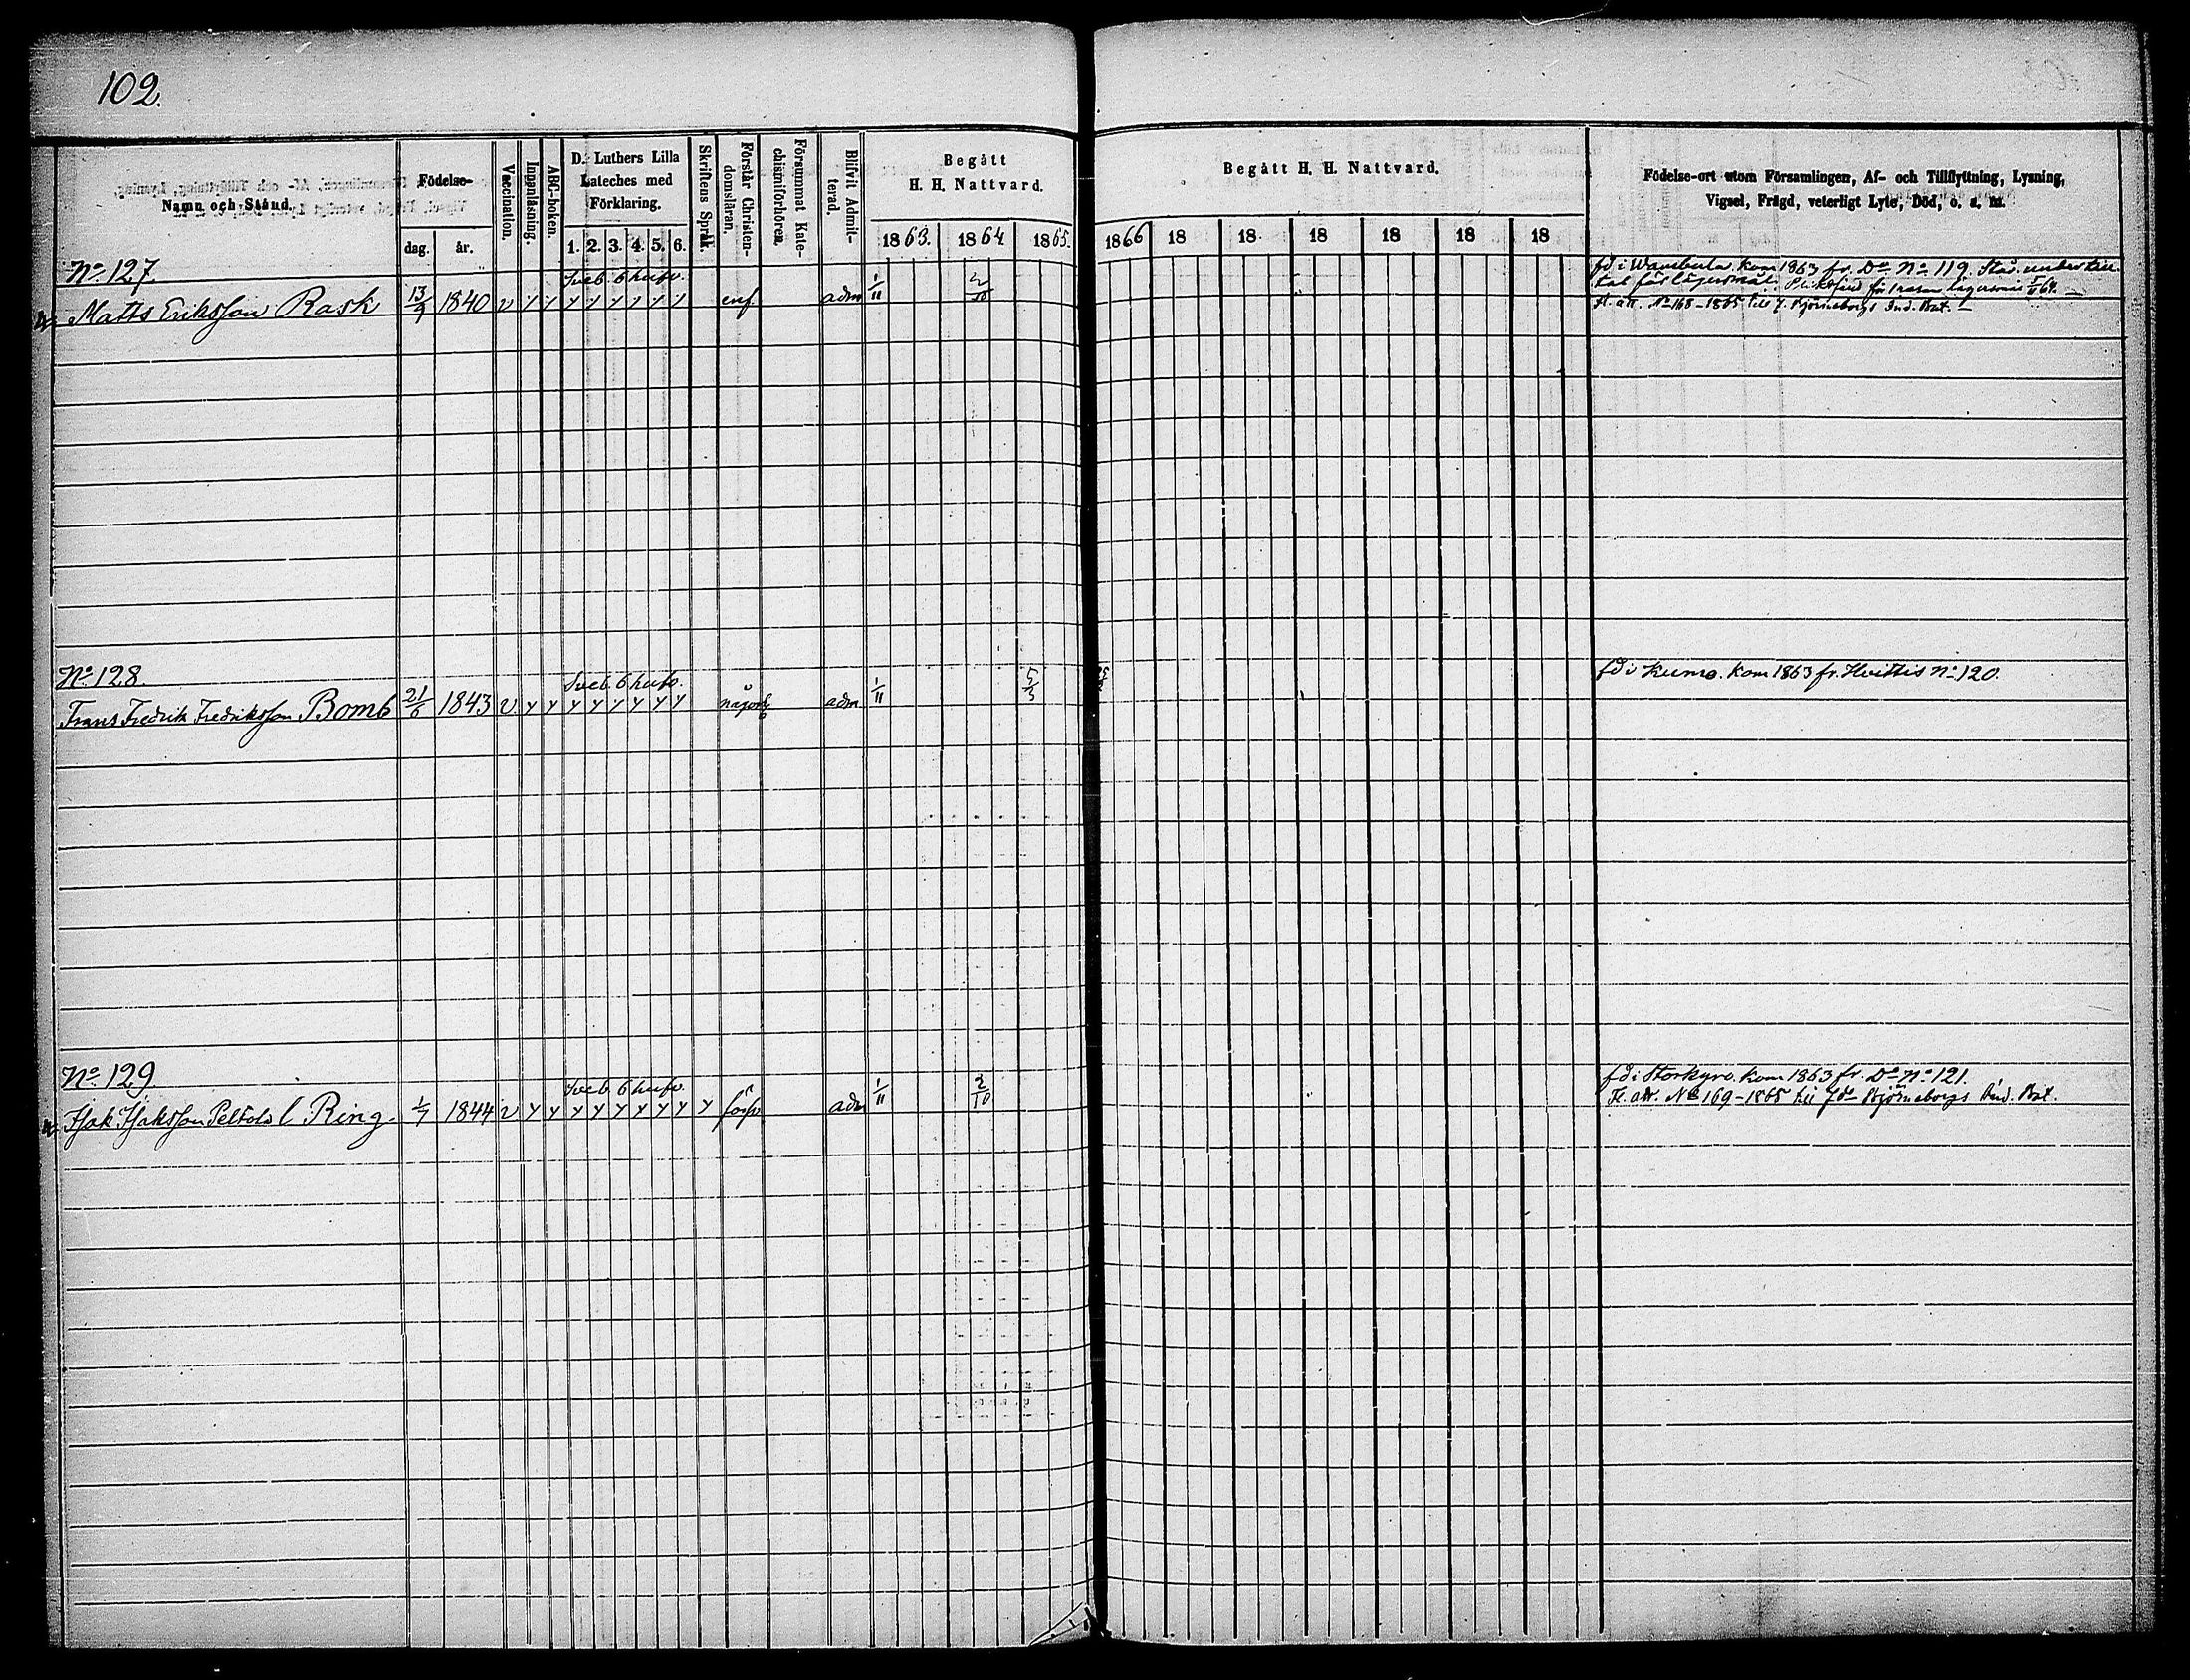 102.
Namn och Stånd.
Födelse-
dag. år.
Vaccination.
Innanläsning.
ABC-boken.
D. Luthers Lilla
Kateches med
Förklaring.
1. 2. 3. 4. 5. 6.
Skriftens Språk.
Förstår Christen-
domsläran.
Försummat Kate-
chismiförhören.
Blifvit Admit-
terad.
Begått
H. H. Nattvard.
1863. 1864 1865.
Begått H. H. Nattvard.
1866 18 18 18 18 18 18
Födelse-ort utom Församlingen, Af- och Tillflyttning, Lysning,
Vigsel, Frägd, veterligt Lyte, Död, o. s. m.
No. 127.
Sveb. 6 hufv.
Matts Eriksson Rask 13/9 1840 v y y y y y y y y enf adm 1/11 2/10
fd i Wambula. Kom 1863 fr. Do No 119. Står under
för lägersmål.
Fl. att. No 168-1865 till 7. Björneborgs Ind. Bat.
No. 128.
Sveb. 6 hufv.
Frans Fredrik Fredriksson Bomb 21/6 1843 v y y y y y y y y någorl adm 1/11 5/3
fd i Kumo. Kom 1863 fr. Hvittis No 120.
No. 129.
Sveb. 6 hufv.
Isak Isaksson Peltola l. Ring. 1/7 1844 v y y y y y y y y y förs adm 1/11 2/10
fd i Storkyro. Kom 1863 fr. Do No 121.
Fl. att. No 169-1865 till 7de Björneborgs Ind. Bat.